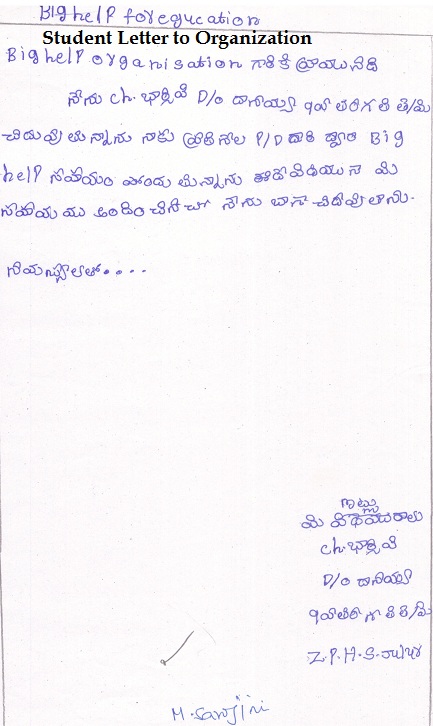 BIG help for equcation
Student Letter to Organization
Big help organisation గారికి వ్రాయునది
నేను ch. భార్గవి D/o దానయ్య 9వ తరగతి తె/మీ
చదువుతున్నాను నాకు ప్రతినెల P/D గారి ద్వారా Big
help సహాయం పొందుతున్నాను మీ
సహాయము నేను బాగా
ఇట్లు
మీ విధేయురాలు
ch. భార్గవి
D/o దానయ్య
9వ తరగతి తె/మీ
Z.P.H.S.
M. Sarojini